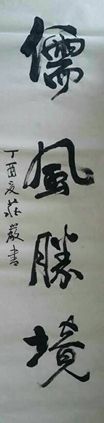 儒風勝境
丁酉夏莊嚴書